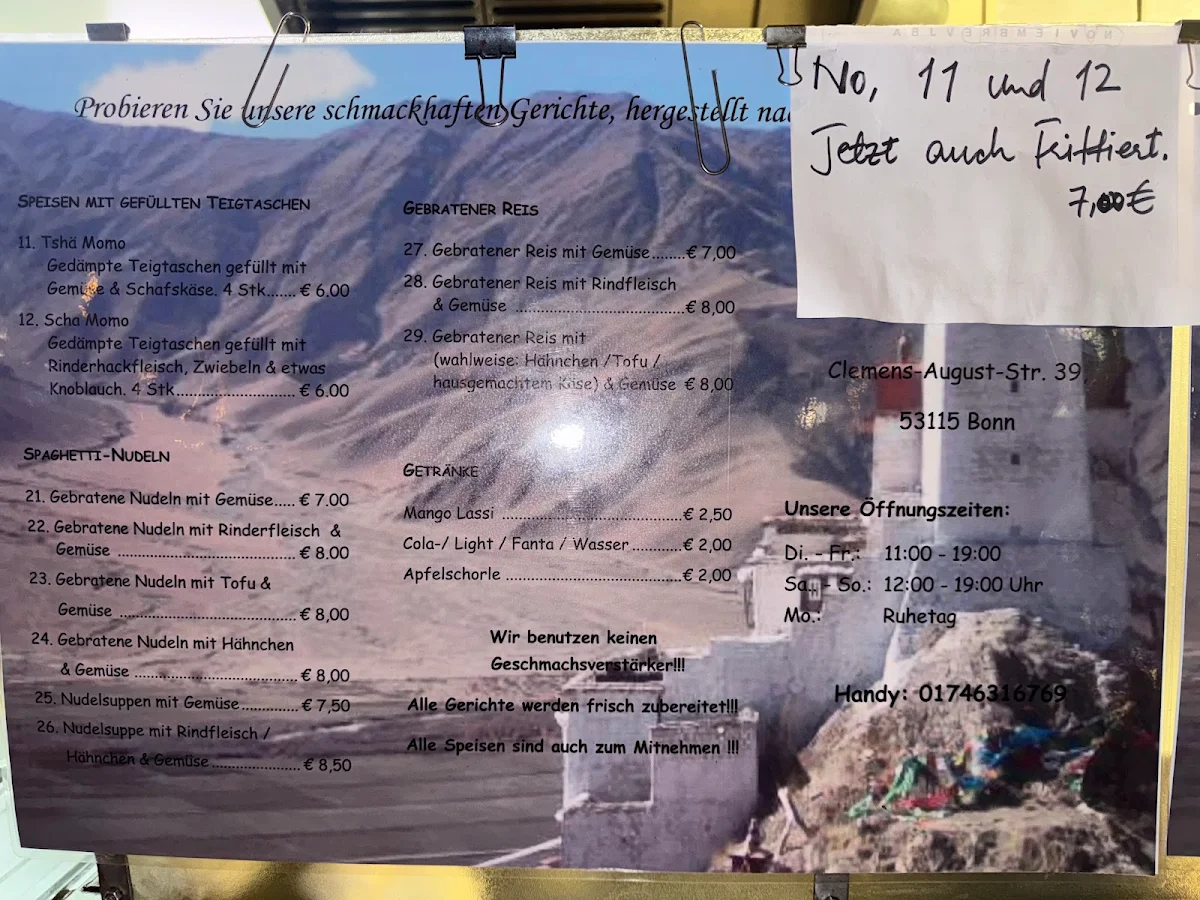 Probieren Sie unsere schmackhaften Gerichte, hergestellt
No, 11 und 12
Jetzt auch Frittiert.
7,00€
SPEISEN MIT GEFÜLLTEN TEIGTASCHEN
11. Tshä Momo
Gedämpfte Teigtaschen gefüllt mit
Gemüse & Schafskäse. 4 Stk....... € 6.00
12. Scha Momo
Gedämpfte Teigtaschen gefüllt mit
Rinderhackfleisch, Zwiebeln & etwas
Knoblauch. 4 Stk............................ € 6.00
SPAGHETTI-NUDELN
21. Gebratene Nudeln mit Gemüse..... € 7.00
22. Gebratene Nudeln mit Rinderfleisch &
Gemüse .......................................... € 8.00
23. Gebratene Nudeln mit Tofu &
Gemüse .......................................... € 8,00
24. Gebratene Nudeln mit Hähnchen
& Gemüse ...................................... € 8,00
25. Nudelsuppen mit Gemüse............. € 7,50
26. Nudelsuppe mit Rindfleisch /
Hähnchen & Gemüse ..................... € 8,50
GEBRATENER REIS
27. Gebratener Reis mit Gemüse........€ 7,00
28. Gebratener Reis mit Rindfleisch
& Gemüse .......................................€ 8,00
29. Gebratener Reis mit
(wahlweise: Hähnchen /Tofu /
hausgemachtem Käse) & Gemüse € 8,00
GETRÄNKE
Mango Lassi ..........................................€ 2,50
Cola-/ Light / Fanta / Wasser ............€ 2,00
Apfelschorle .........................................€ 2,00
Wir benutzen keinen
Geschmacksverstärker!!!
Alle Gerichte werden frisch zubereitet!!!
Alle Speisen sind auch zum Mitnehmen !!!
Clemens-August-Str. 39,
53115 Bonn
Unsere Öffnungszeiten:
Di. - Fr.: 11:00 - 19:00
Sa.. - So.: 12:00 - 19:00 Uhr
Mo.: Ruhetag
Handy: 01746316769